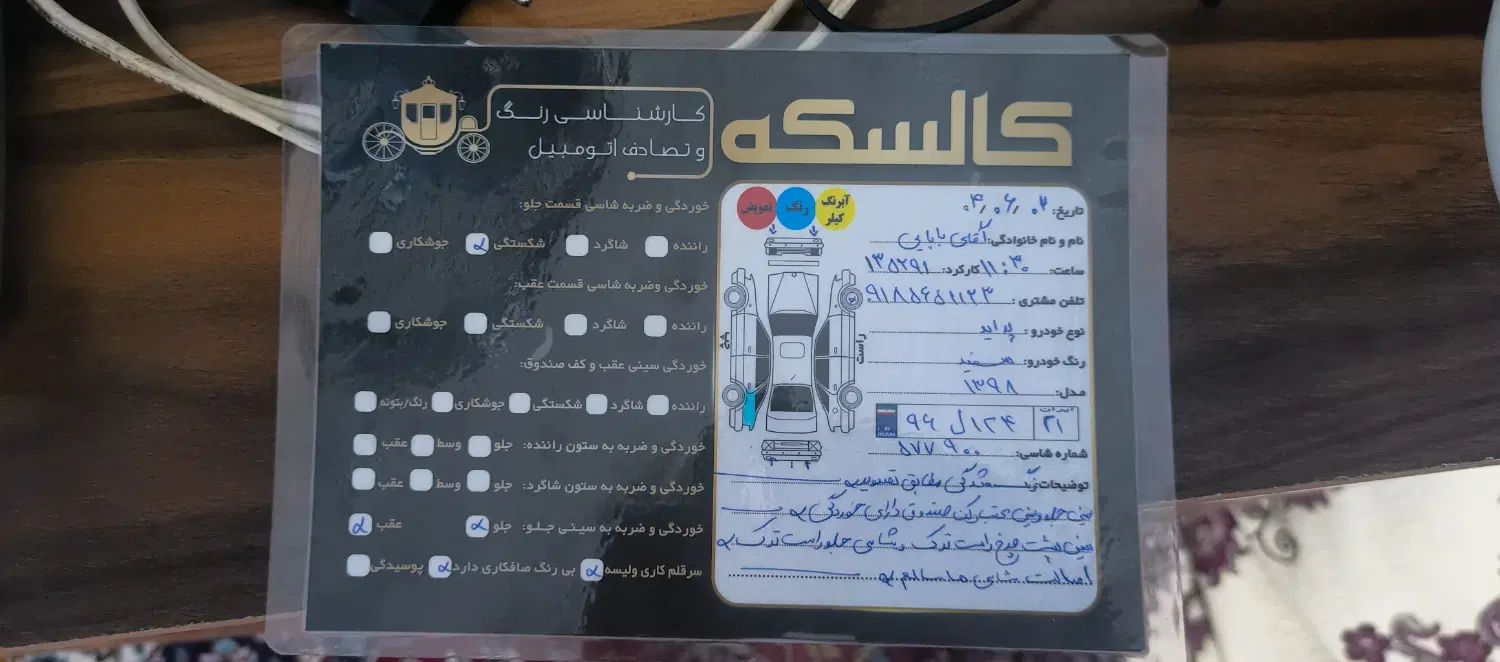 کالسکه
کارشناسی رنگ
و تصادف اتومبیل
آبرنگ کیلر
رنگ
تعویض
تاریخ: ۰۴/۰۶/۰۲
نام و نام خانوادگی: آقای بابایی
ساعت: ۱۱:۳۰ کارکرد: ۱۳۵۲۹۱
تلفن مشتری: ۹۱۸۵۶۵۱۱۲۳
نوع خودرو: پراید
رنگ خودرو: سفید
مدل: ۱۳۹۸
۹۶ ل ۱۲۴
ایران ۲۱
I R IRAN
شماره شاسی: ۵۷۷۹۰۰
راست
چپ
توضیحات: رنگ شدگی مطابق تصویر
سینی جلو و سینی عقب رکن صندوق دارای خوردگی
سینی پشت چرخ راست ترک و شاسی جلو راست ترک
اصالت شاسی ها سالم
خوردگی و ضربه شاسی قسمت جلو:
راننده شاگرد شکستگی جوشکاری
خوردگی وضربه شاسی قسمت عقب:
راننده شاگرد شکستگی جوشکاری
خوردگی سینی عقب و کف صندوق:
راننده شاگرد شکستگی جوشکاری رنگ/بتونه
خوردگی و ضربه به ستون راننده: جلو وسط عقب
خوردگی و ضربه به ستون شاگرد: جلو وسط عقب
خوردگی و ضربه به سینی جلـو: جلو عقب
سرقلم کاری ولیسه بی رنگ صافکاری دارد پوسیدگی